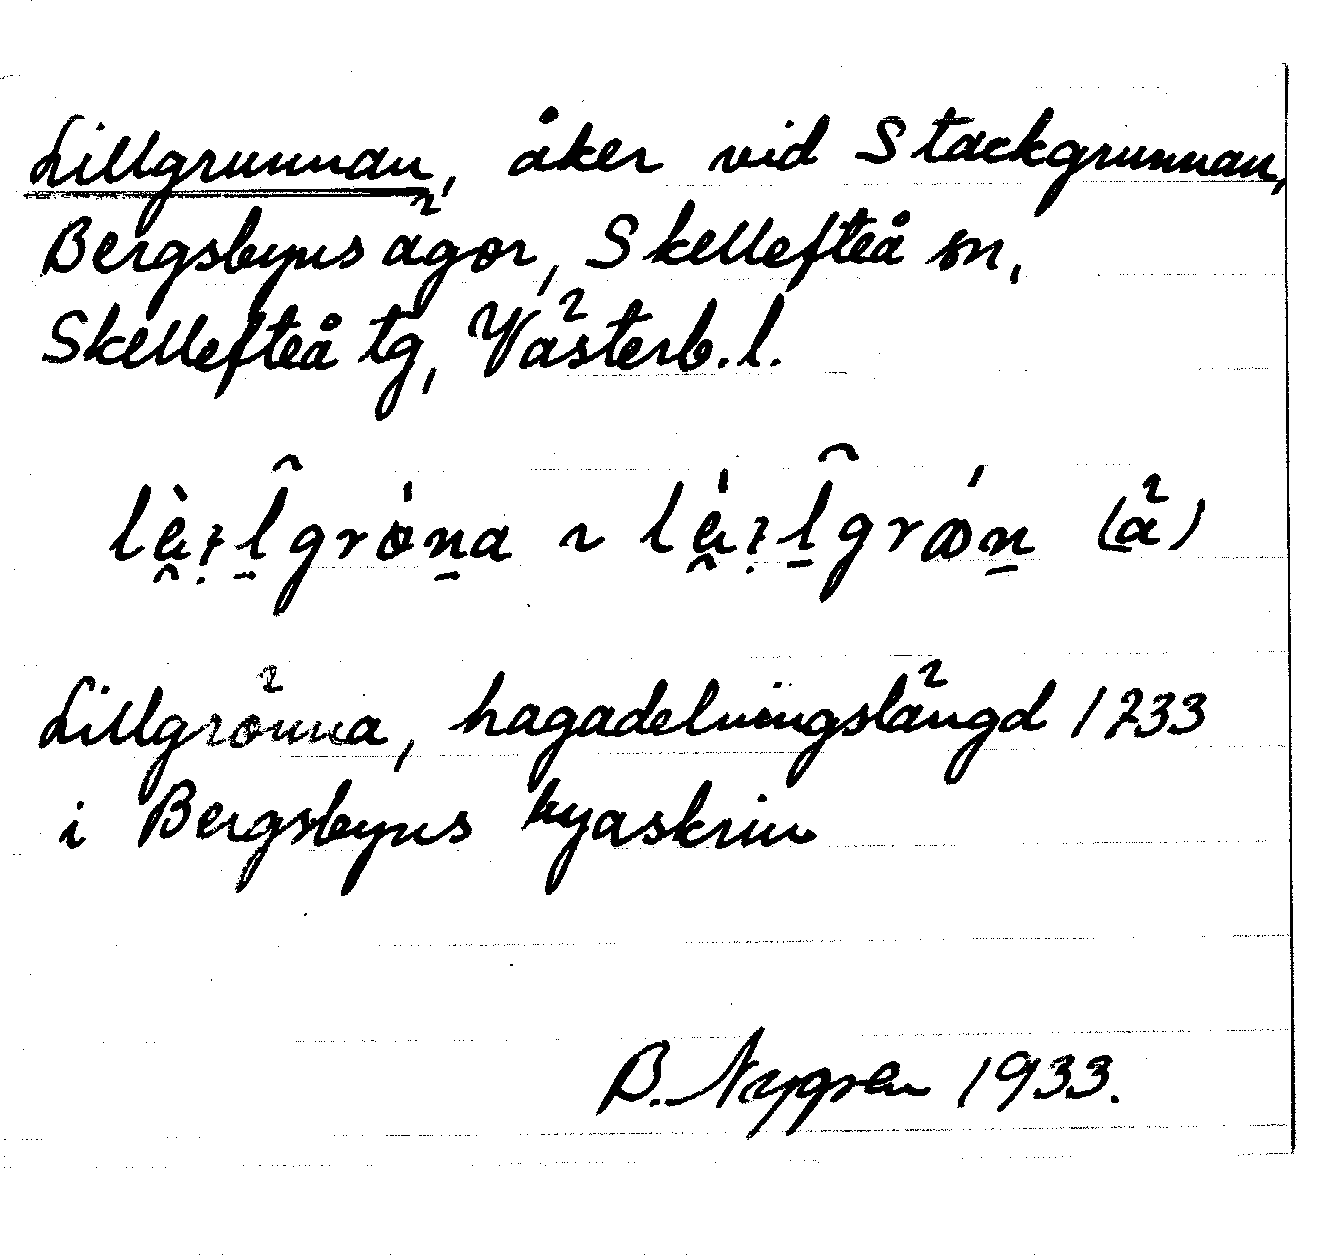 Lillgrunnan, åker vid Stackgrunnan,
Bergsbyns ägor, Skellefteå sn,
Skellefteå tg, Västerb. l.
(ä)
Lillgrönna, hagadelningslängd 1733
i Bergsbyns byaskrin
B. Nygren 1933.